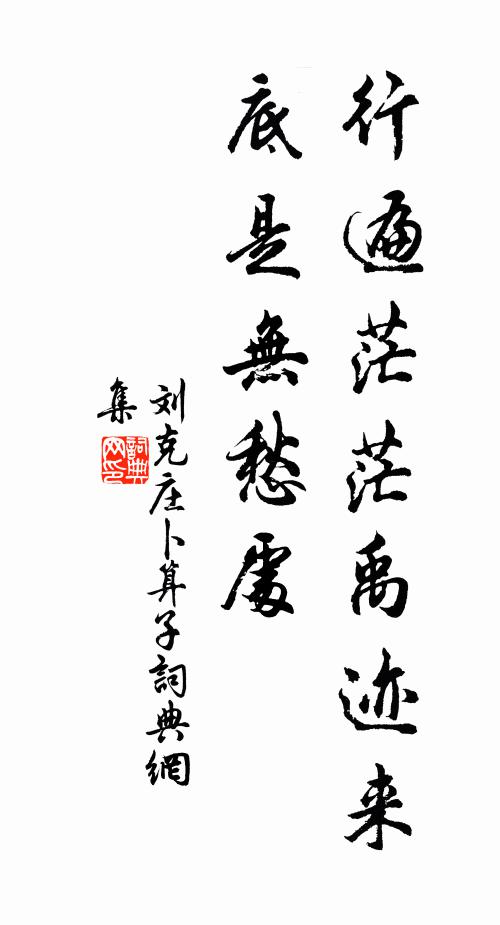 行遍茫茫禹迹来
底是無愁處
刘克庄卜算子詞典網
集
詞典
网印